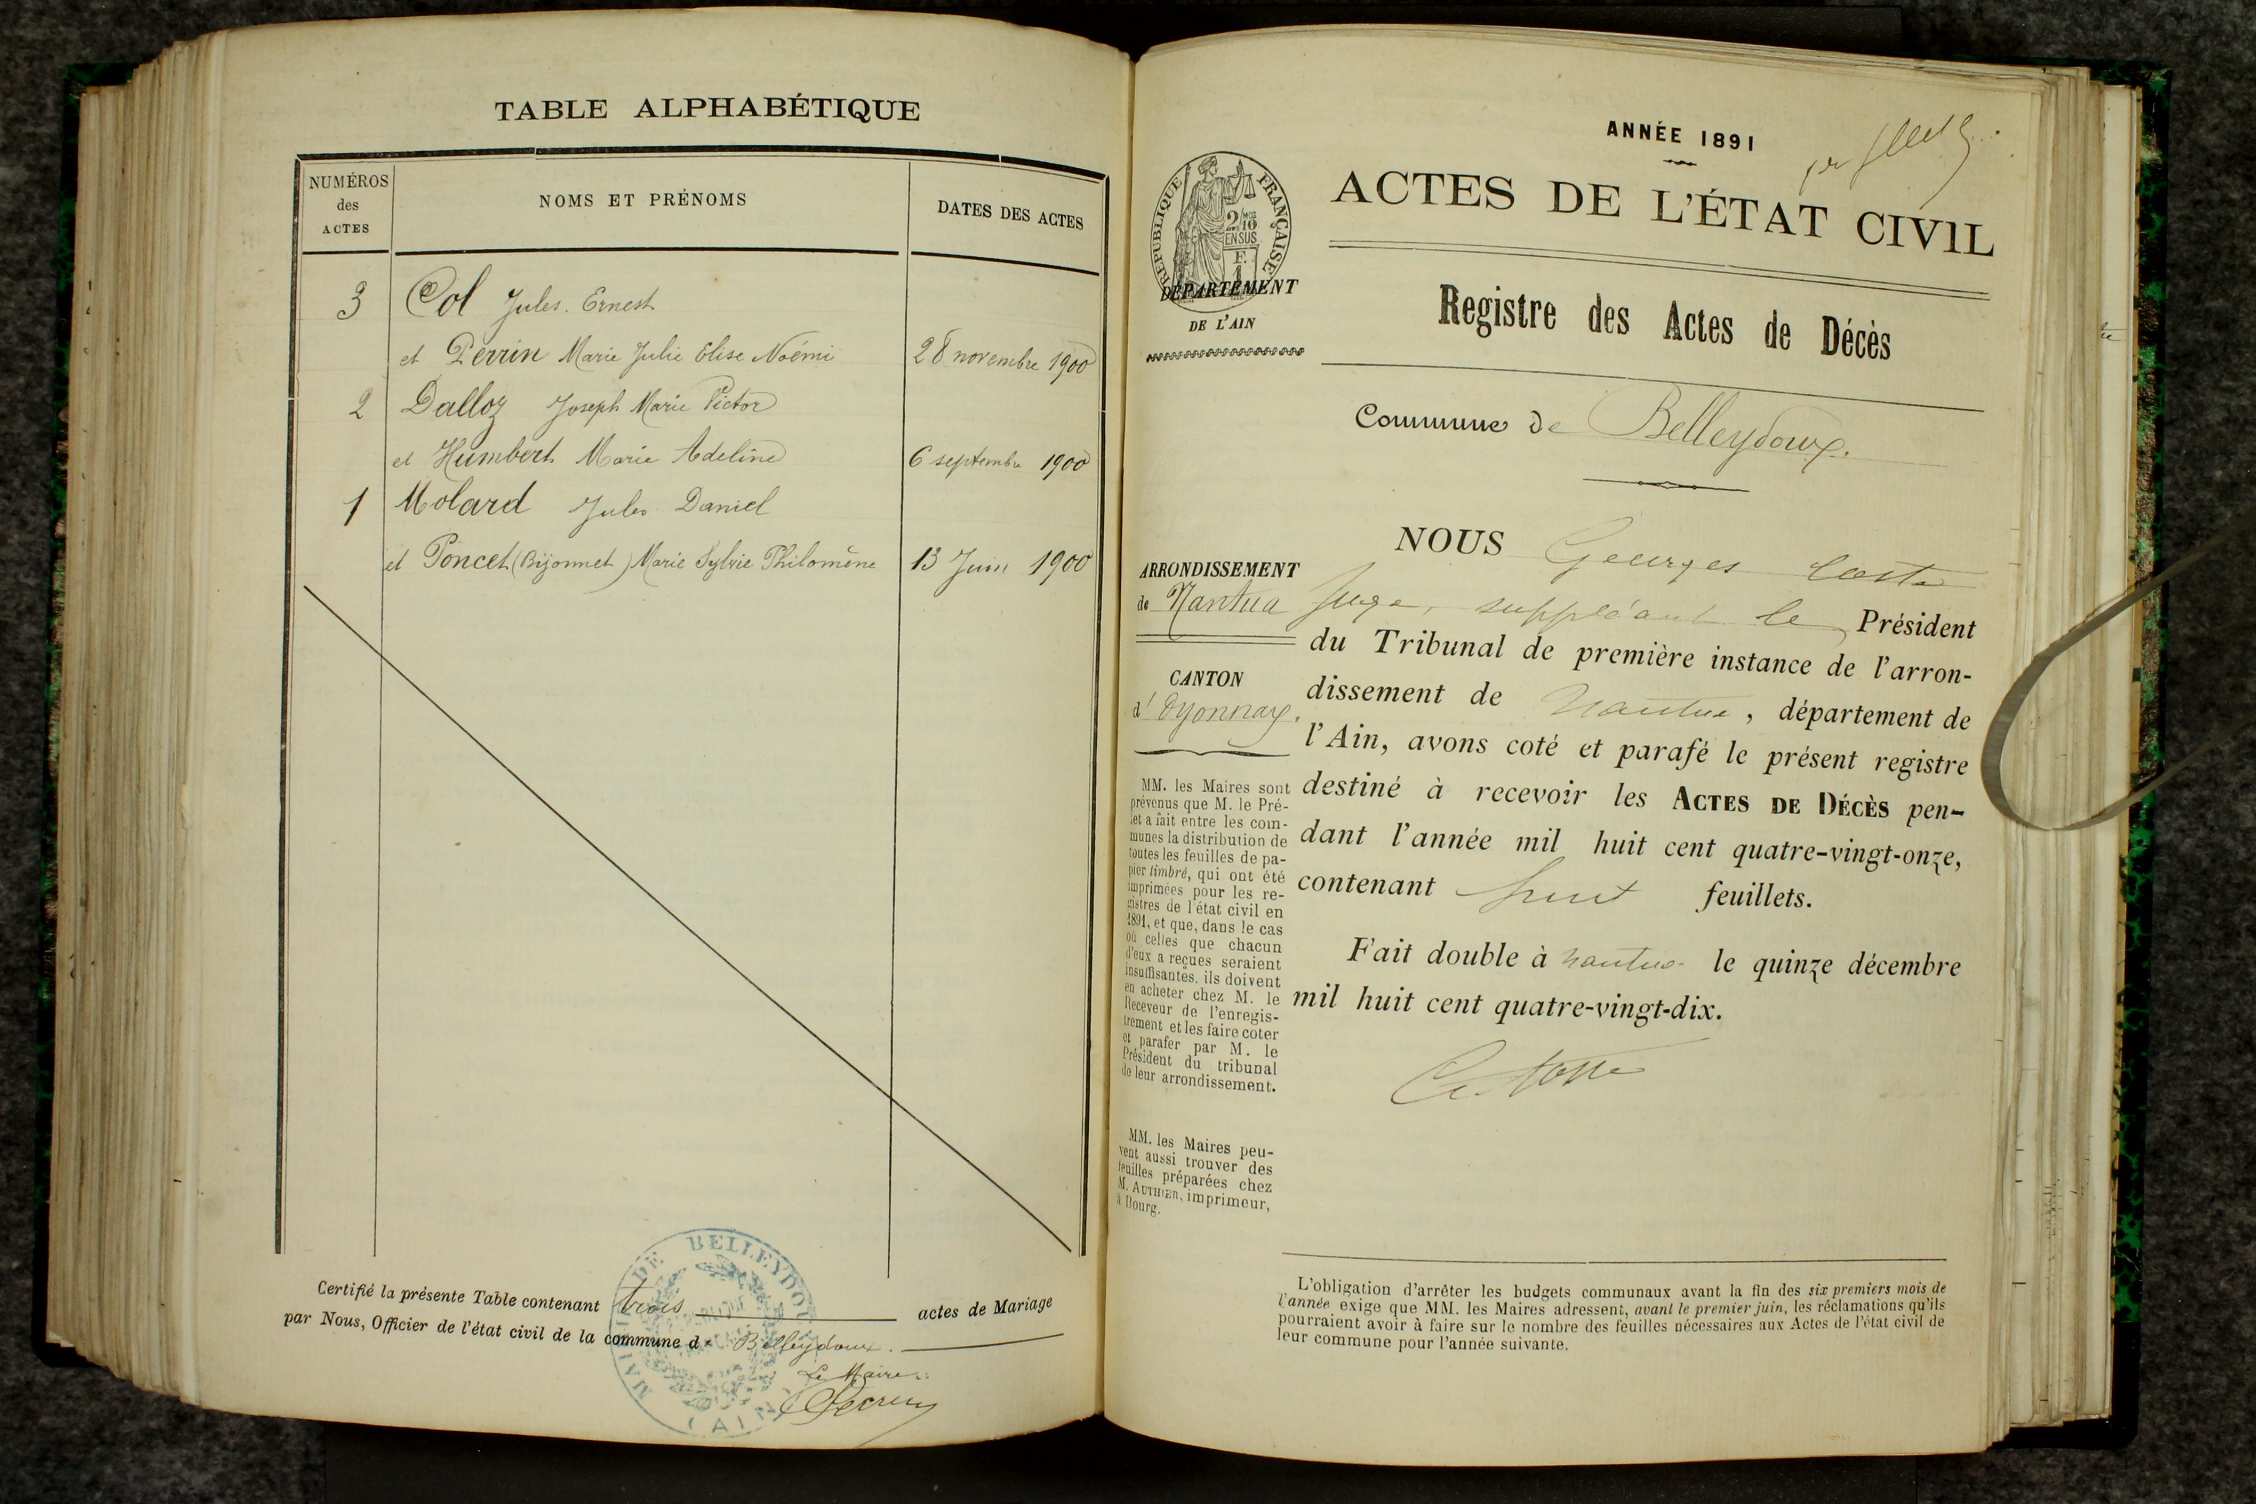 TABLE ALPHABÉTIQUE
NUMÉROS
des
ACTES
NOMS ET PRÉNOMS
DATES DES ACTES
3 Col Jules Ernest
et Perrin Marie Julie Elise Noémi 28 novembre 1900
2 Dalloz Joseph Marie Victor
et Humbert Marie Adeline 6 septembre 1900
1 Molard Jules Daniel
et Poncet (Bijonnet) Marie Sylvie Philomène 13 Juin 1900
Certifié la présente Table contenant trois actes de Mariage
par Nous, Officier de l'état civil de la commune de Belleydoux.
Le Maire
MAIRIE DE BELLEYDOUX
(AIN)
ANNÉE 1891
ACTES DE L'ÉTAT CIVIL
RÉPUBLIQUE FRANÇAISE
2/10
EN SUS
F.
1
DÉPARTEMENT
DE L'AIN
Registre des Actes de Décès
Commune de Belleydoux.
ARRONDISSEMENT
de Nantua
CANTON
d'Oyonnax.
MM. les Maires sont
prévenus que M. le Pré-
fet a fait entre les com-
munes la distribution de
toutes les feuilles de pa-
pier timbré, qui ont été
imprimées pour les re-
gistres de l'état civil en
1891, et que, dans le cas
où celles que chacun
d'eux a reçues seraient
insuffisantes, ils doivent
en acheter chez M. le
Receveur de l'enregis-
trement et les faire coter
et parafer par M. le
Président du tribunal
de leur arrondissement.
MM. les Maires peu-
vent aussi trouver des
feuilles préparées chez
M. AUTHIER, imprimeur,
à Bourg.
NOUS Georges Coste
Juge, suppléant le Président
du Tribunal de première instance de l'arron-
dissement de Nantua, département de
l'Ain, avons coté et parafé le présent registre
destiné à recevoir les ACTES DE DÉCÈS pen-
dant l'année mil huit cent quatre-vingt-onze,
contenant huit feuillets.
Fait double à Nantua le quinze décembre
mil huit cent quatre-vingt-dix.
L'obligation d'arrêter les budgets communaux avant la fin des six premiers mois de
l'année exige que MM. les Maires adressent, avant le premier juin, les réclamations qu'ils
pourraient avoir à faire sur le nombre des feuilles nécessaires aux Actes de l'état civil de
leur commune pour l'année suivante.